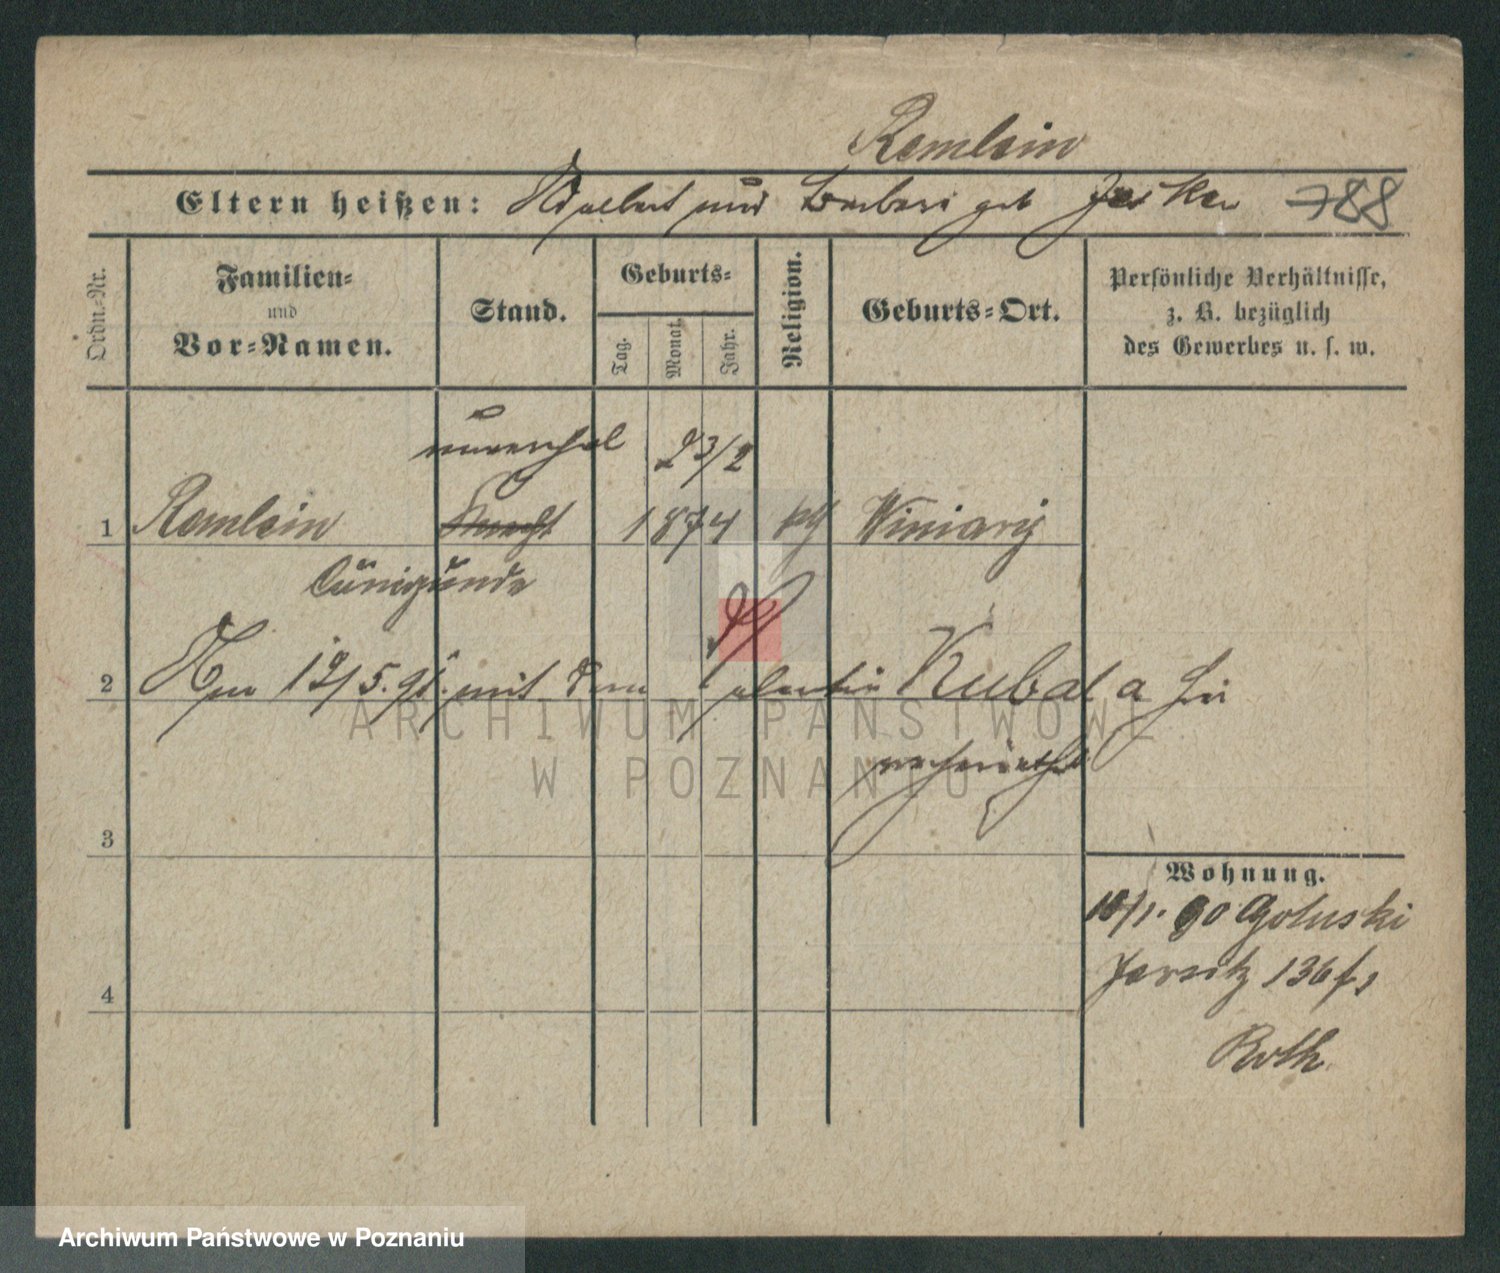 Remlein
Eltern heißen: Adalbert und Barbara geb Jeska 788
Ordn.-Nr.
Familien-
und
Vor-Namen.
Stand.
Geburts-
Tag.
Monat.
Jahr.
Religion.
Geburts-Ort.
Persönliche Verhältnisse,
z. B. bezüglich
des Gewerbes u. s. w.
unverehel 23/2
1 Remlein 1874 kth Winiary
Cunigunde
2 Am 19/5.91. mit dem Valentin Kubala hier
verheirathet
3
Wohnung.
10/1. 90 Goluski
4
Jersitz 136 f.
Roth
ARCHIWUM PAŃSTWOWE
W POZNANIU
Archiwum Państwowe w Poznaniu